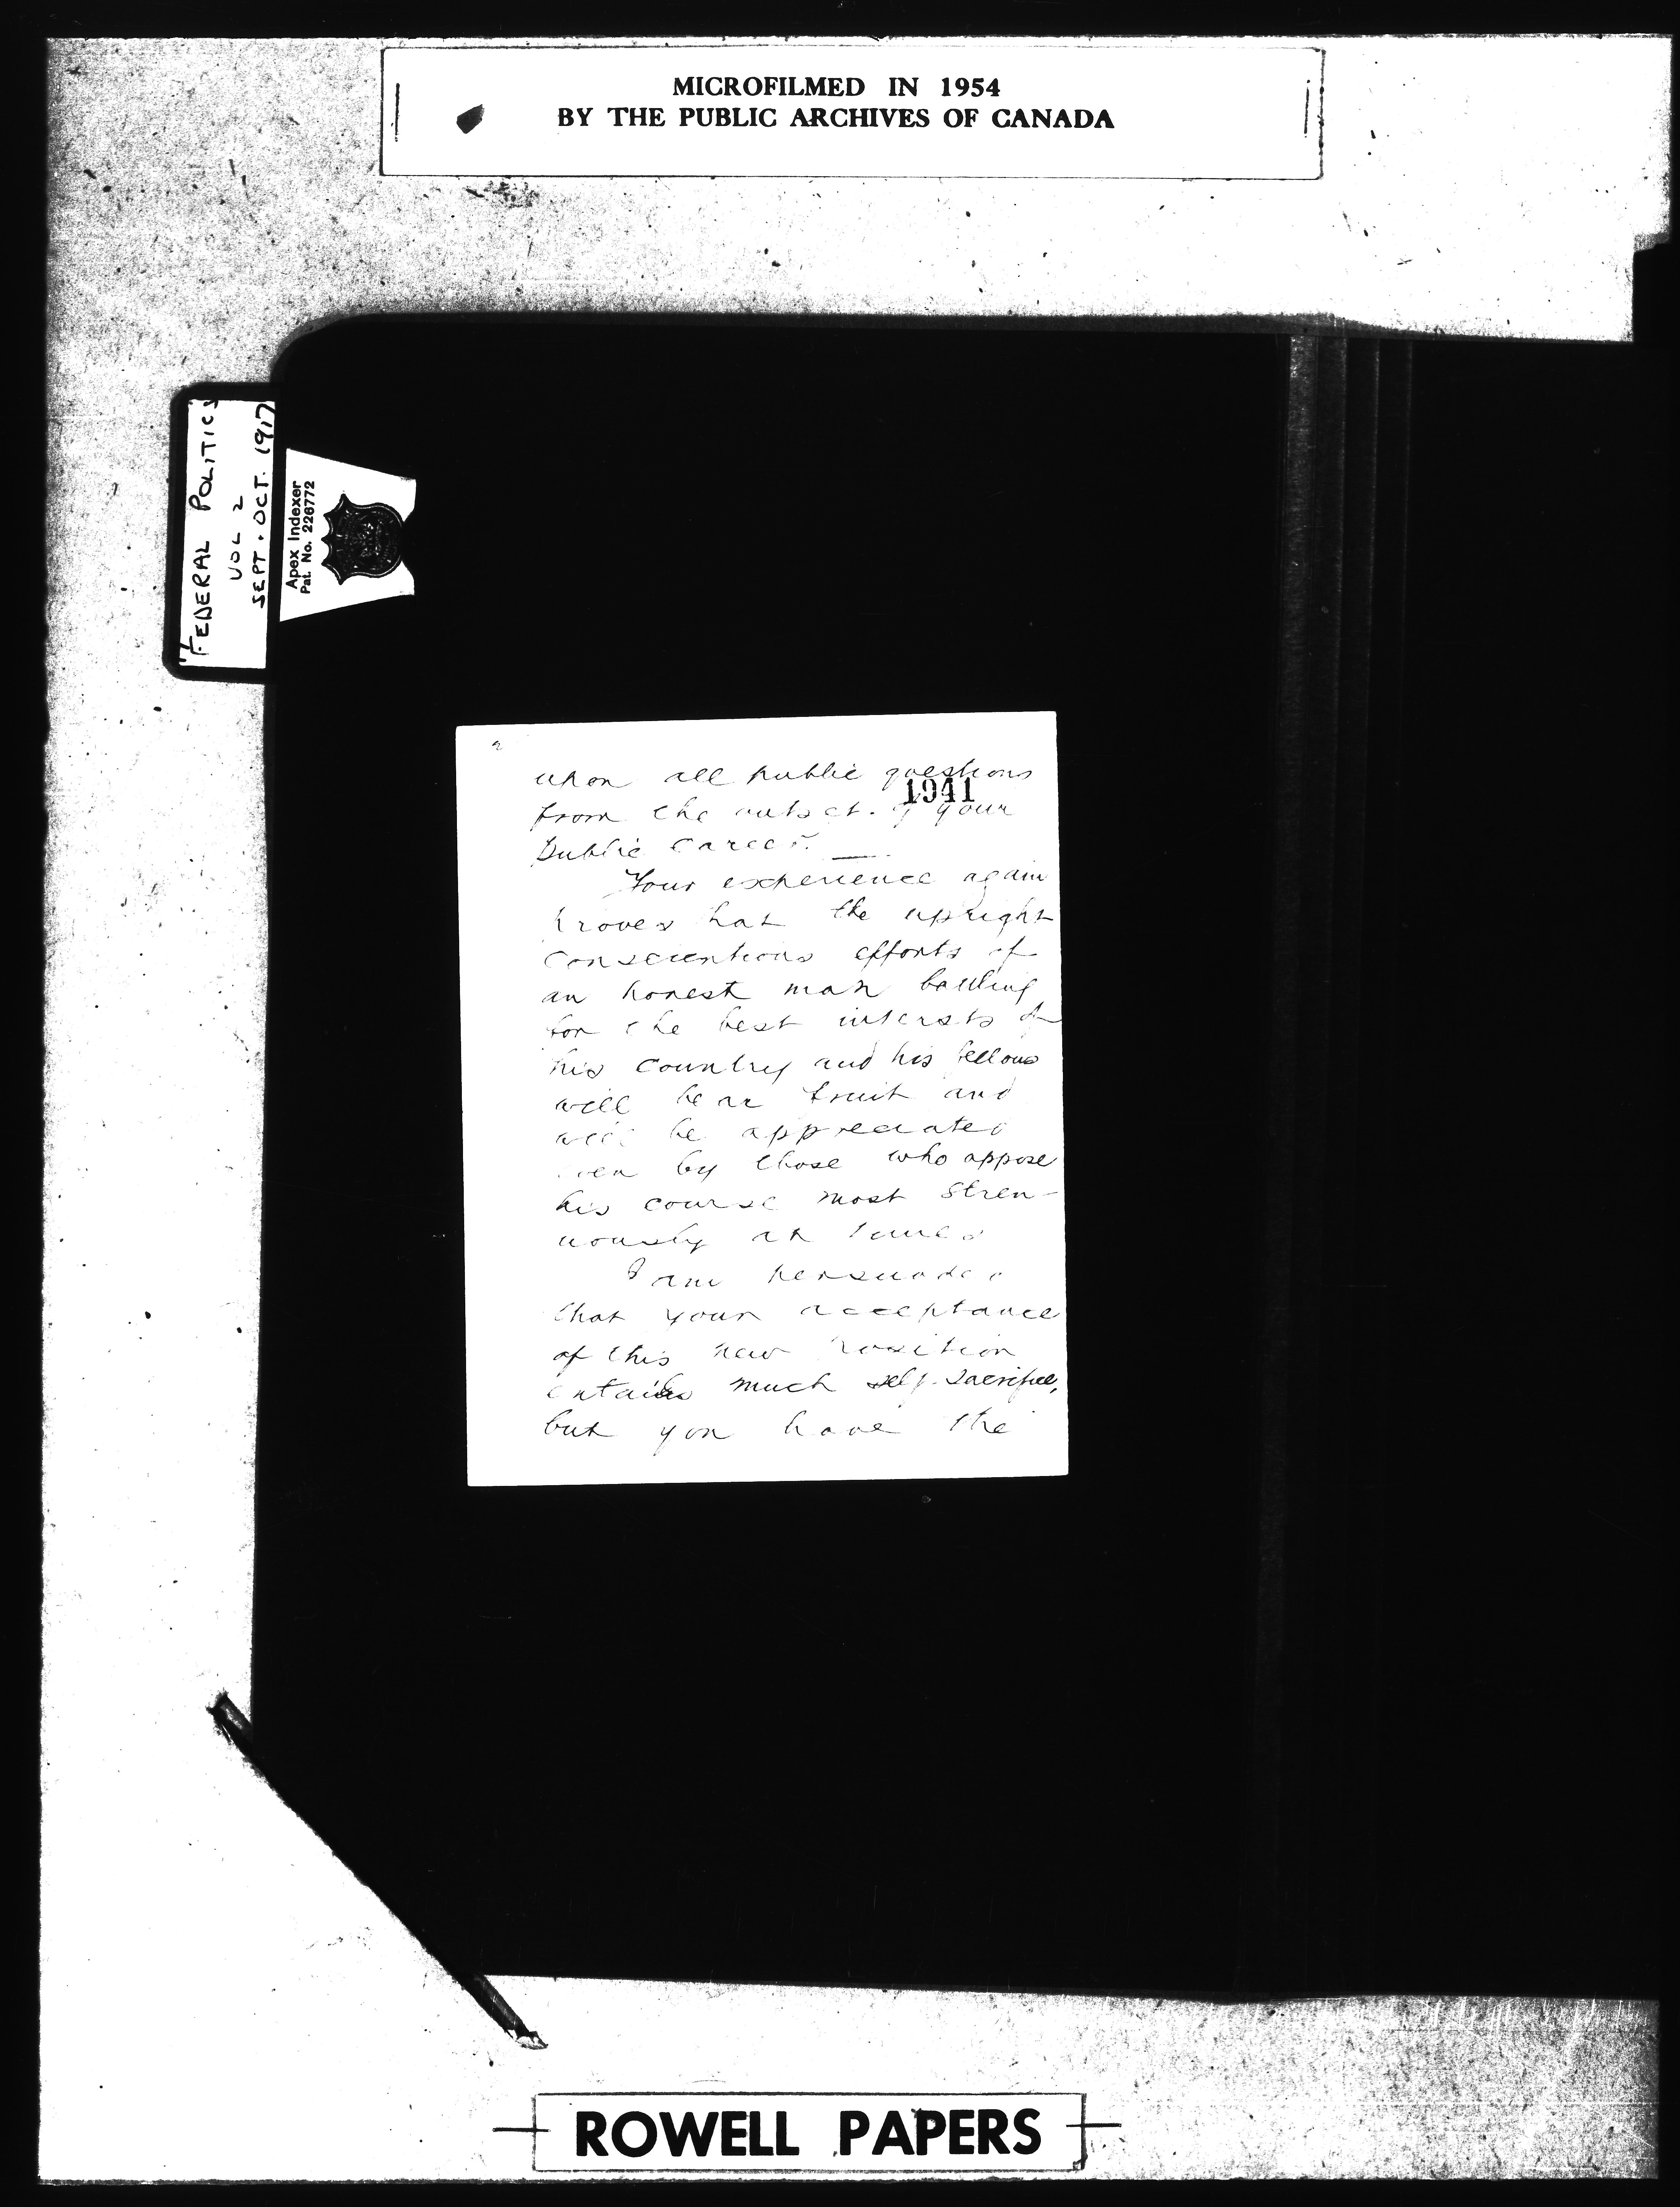 MICROFILMED IN 1954
BY THE PUBLIC ARCHIVES OF CANADA
FEDERAL POLITICS
VOL 2
SEPT. OCT. 1917
Apex Indexer
Pat. No. 226772
2
upon all public questions
1941
from the outset of your
public career.
Your experience again
proves that the upright
conscientious efforts of
an honest man battling
for the best interests of
his country and his fellows
will bear fruit and
will be appreciated
even by those who oppose
his course most stren-
uously at times
I am persuaded
that your acceptance
of this new position
entails much self-sacrifice,
but you have the
ROWELL PAPERS